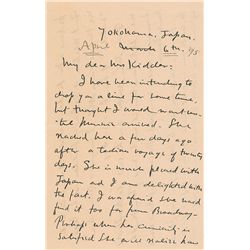 Yokohama, Japan.
April March 6th. 15
My dear Mrs Kidder:
I have been intending to
drop you a line for some time,
but thought I would wait un-
til Minnie arrived. She
reached here a few days ago
after a tedious voyage of twenty
days. She is much pleased with
Japan and I am delighted with
the fact. I was afraid she would
find it too far from Broadway-
Perhaps when her curiosity is
satisfied she will realize how